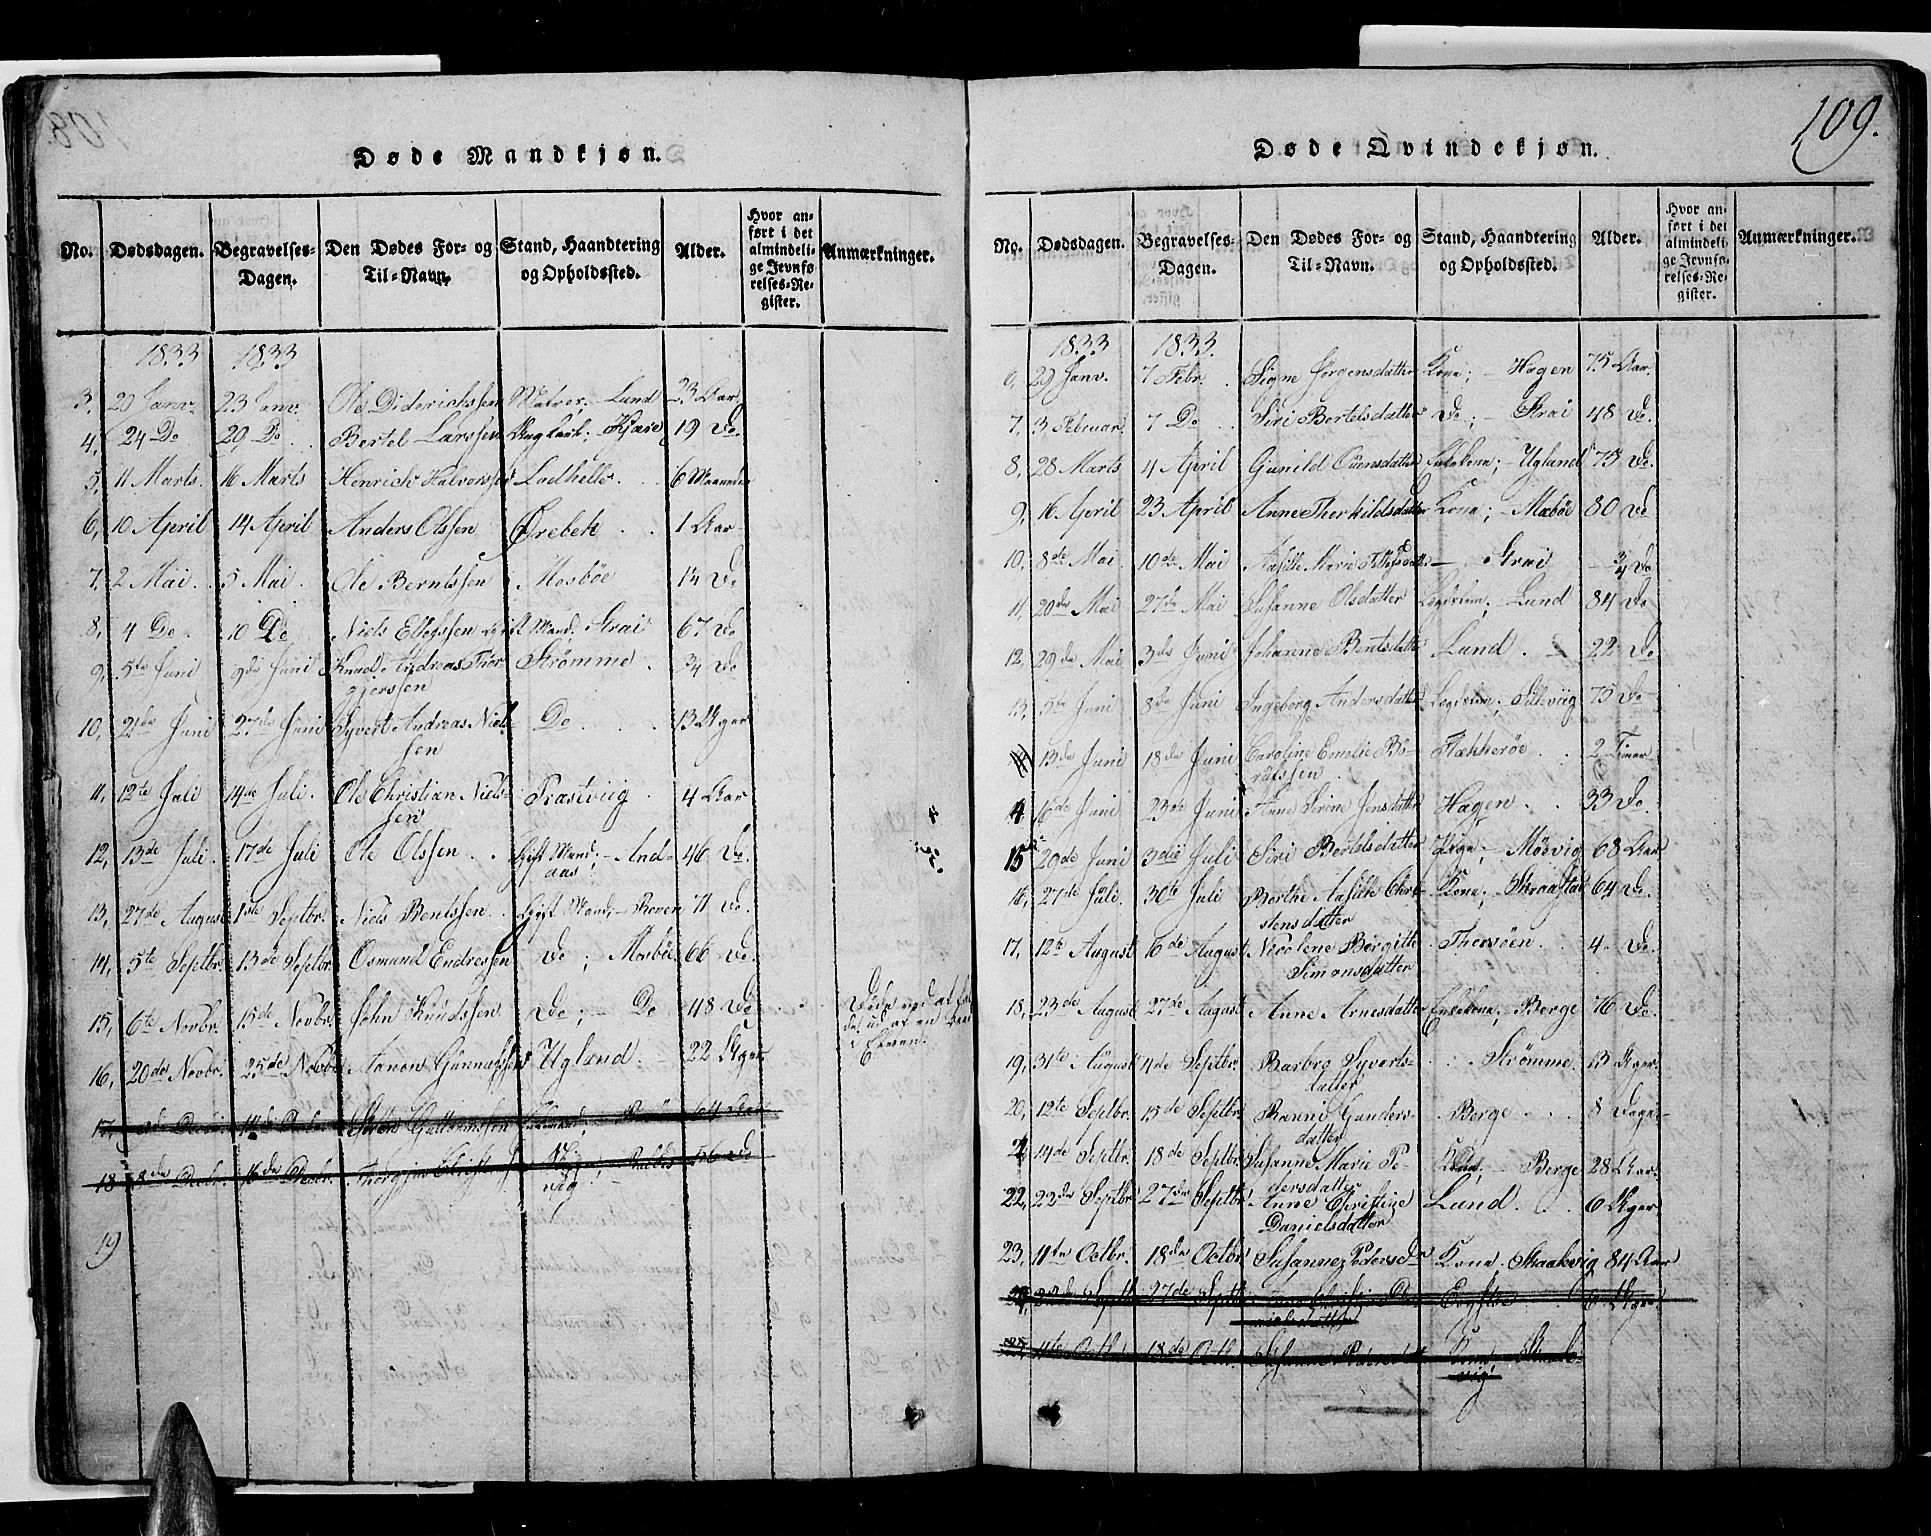 109.
Døde Mandkjøn.
No. Dødsdagen. Begravelses-Dagen. Den Dødes For- og Til-Navn. Stand, Haandtering og Opholdssted. Alder. Hvor anført i det almindelige Jevnførelses-Register. Anmærkninger.
1833 1833
3, 20 Janv. 23 Janv. Ole Diderichssen Matros, - Lund 23 Aar
4, 24 Do 29 Do Bertel Larssen Ungkarl; - Kjære 19 Do.
5, 11 Marts. 16 Marts Henrich Halvorssen Lodhelle. 6 Maaneder
6, 10 April 14 April Anders Olssen Ørebek 1 Aar
7, 2 Mai 5 Mai Ole Berntssen Mosbøe 14 Do
8, 4 Do 10 Do Niels Ellefssen Gift Mand; Strai 67 Do
9, 5te Juni 9de Juni Knud Andreas Thor- Strømme 3/4 Do
gjerssen
10, 21de Juni 27de Juni Syvert Andreas Niel- Do 13 Uger
sen
11, 12te Juli 14de Juli. Ole Christian Niels- Præstviig 4 Aar
sen
12, 13de Juli. 17de Juli Ole Olssen Gift Mand; - And- 46 Do.
aas
13, 27de August 1ste Septbr. Niels Bentssen Gift Mand; - Roven 71 Do.
14, 5te Septbr. 13de Septbr. Osmund Endressen Do ; Mosbøe 66 Do.
15, 6te Novbr. 15de Novbr. John Knudssen Do; - Do 48 Do
i Elven.
16, 20de Novbr. 25de Novbr Aanon Gunnufssen Ugland 22 Uger
17, Gutormssen 64 Aar
18 8de 16de Decbr. Thorgjer Christens 56 Do
19
Døde Qvindekjøn.
No. Dødsdagen. Begravelses-Dagen. Den Dødes For- og Til-Navn. Stand, Haandtering og Opholdssted. Alder. Hvor anført i det almindelige Jevnførelses-Register. Anmærkninger.
1833 1833.
6, 29 Janv. 7 Febr. Signe Jørgensdatter Kona; - Hagen 75 Aar.
7, 3 Februar. 7 Do Siri Bertelsdatter Do; - Strai 48 Do.
8, 28 Marts 4 April Gunild Ouensdatter Enkekona; - Ugland 75 Do.
9, 16 April 23 April Anne Therkildsdatter Kona; - Mæbøe 80 Do
10, 8de Mai 10de Mai Aasille Marie Tellefsdatt. - Strai 3/4 Do
11, 20de Mai 27de Mai Susanne Olsdatter Lægdslem; Lund 84 Do
12, 29de Mai 3de Juni Johanne Bentsdatter Lund. 22 Do
13, 5te Juni 8de Juni Ingeborg Andersdatter Lægdslem; Silleviig 75 Do
13de Juni 18de Juni Caroline Emelie Bø- Flækkerøe 2 Timer
rufssen
4 16de Juni 23de Juni Anne Trine Jensdatter Hagen 33 Do.
15 29de Juni 3die Juli Siri Bertelsdatter Pige; - Møsvig 68 Aar
16, 27de Juli. 30te Juli Berthe Aasille Chri- Kona; Straastad 64 Do.
stensdatter
17, 12te August 16de August Nicolene Børgitte Thorsøen 4 Do.
Simonsdatter
18, 23de August 27de August Anne Arnesdatter Enkekona; Berge 76 Do.
19, 31te August 4de Septbr. Barbro Syverts- Strømme 13 Uger.
datter
20, 12te Septbr. 15de Septbr. Ranni Gunders- Berge 8 Dage
datter
21 14de Septbr. 18de Septbr Susanne Marie Pe- Kona; - Berge 28 Aar.
dersdatter
22, 22de Septbr 27de Septbr Anne Christine Lund 6 Uger
Danielsdatter
23, 11te Octbr. 18de Octbr Susanne Pedersdr Kona. Skraakvig 84 Aar
22de Septb 27de Septb 6 Uger
nielsdatter
11te Octbr 18de Octb. Susanne Pedersdatt Kona;
vig